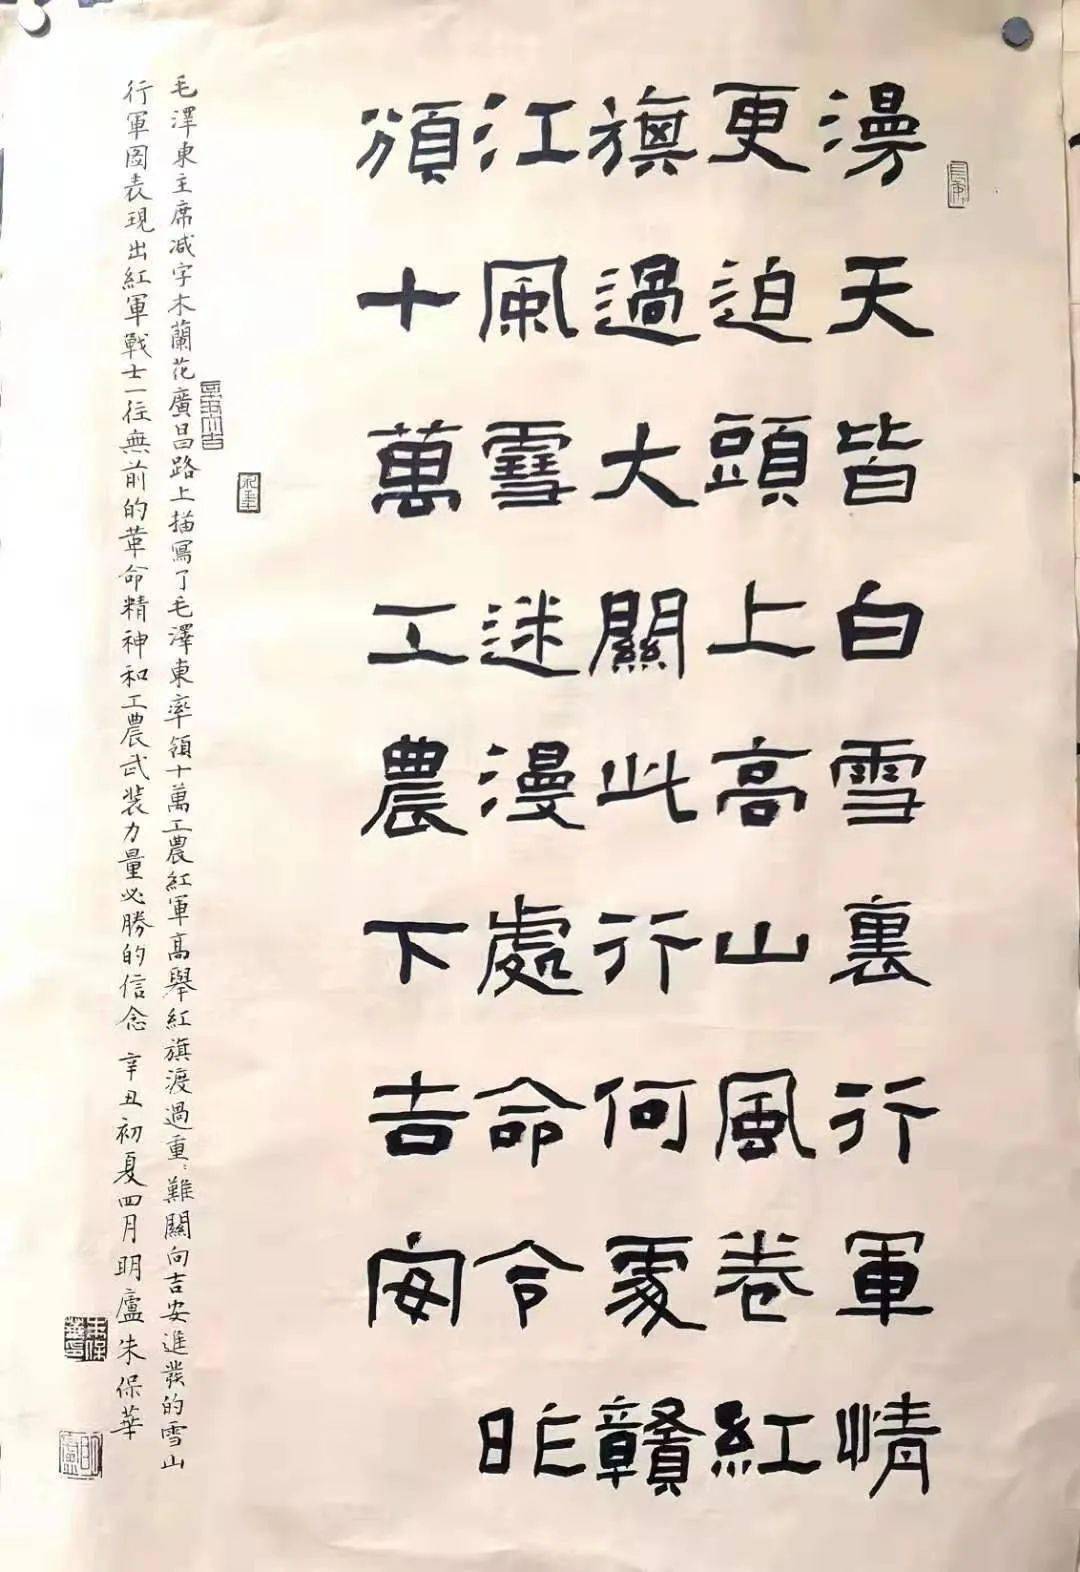 漫天皆白雪裏行軍情
更迫頭上高山風卷紅
旗過大關此行何處贛
江風雪迷漫處命令昨
頒十萬工農下吉安
毛澤東主席減字木蘭花廣昌路上描寫了毛澤東率領十萬工農紅軍高舉紅旗渡過重:難關向吉安進發的雪山
行軍圖表現出紅軍戰士一往無前的革命精神和工農武裝力量必勝的信念 辛丑初夏四月明廬朱保華
朱保華印
明廬